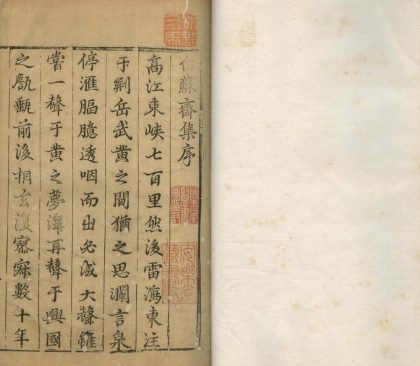 白蘇齋集序
髙江束峽七百里然後雷瀉東注
于荆岳武黄之間猶之思瀾言泉
停滙膈臆透咽而出必成大聲雖
嘗一聲于黄之夢澤再聲于興國
之甔甀前後相去復寥寂數十年